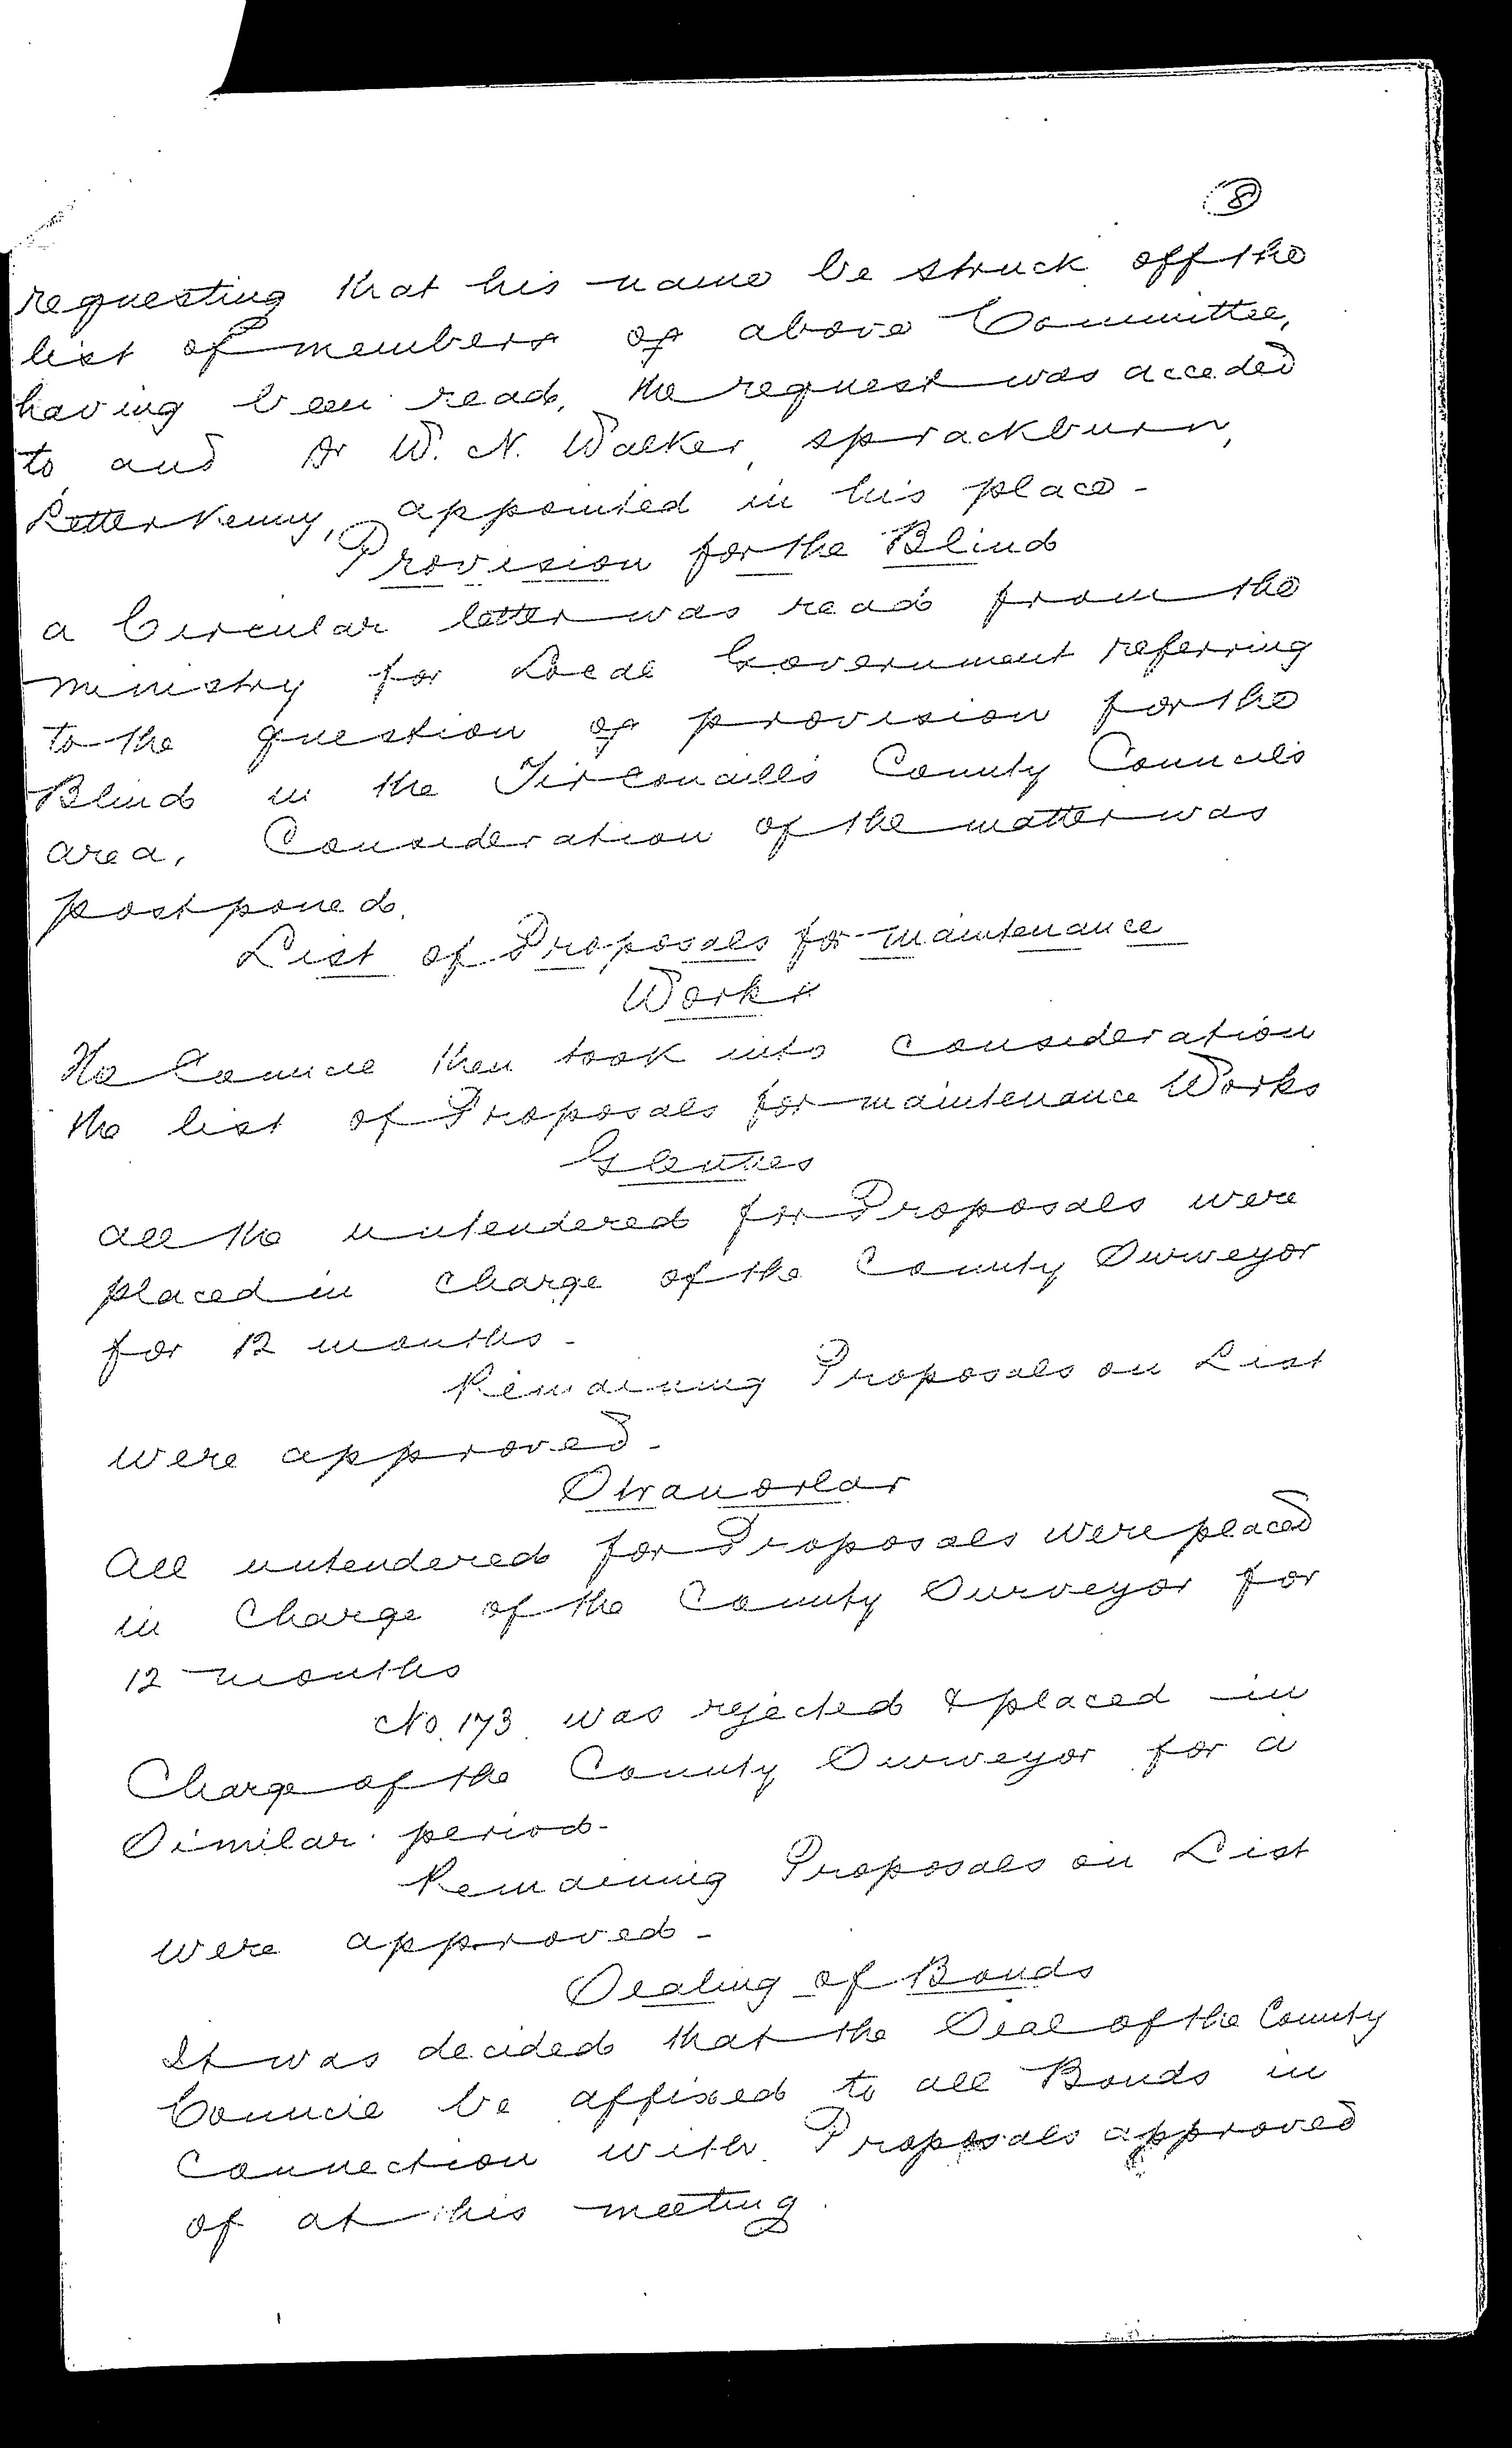 8
requesting that his name be struck off the
list of members of above Committee,
having been read, the request was acceded
to, and Dr W. N. Walker, Sprackburn,
Letterkenny, appointed in his place -
Provision for the Blind
a Circular letter was read from the
ministry for Local Government referring
to the question of provision for the
Blind in the Tirconaill County Councils
area, Consideration of the matter was
postponed.
List of Proposals for maintenance
Works
The Council then took into consideration
the list of Proposals for maintenance Works
Glenties
all the untendered for Proposals were
placed in charge of the County Surveyor
for 12 months -
Remaining Proposals on List
were approved -
Stranorlar
All untendered for Proposals were placed
in Charge of the County Surveyor for
12 months
No. 173 was rejected & placed in
Charge of the County Surveyor for a
Similar period -
Remaining Proposals on List
were approved -
Sealing of Bonds
It was decided that the Seal of the County
Council be affixed to all Bonds in
Connection with Proposals approved
of at this meeting.